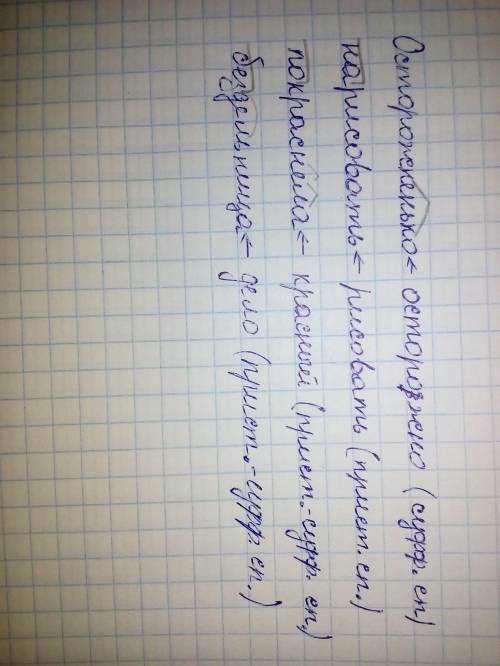 Осторожненько ← осторожно (суфф. сп)
нарисовать ← рисовать (прист. сп.)
покраснела ← красный (прист.-суфф. сп.)
бездельница ← дело (прист.-суфф. сп.)